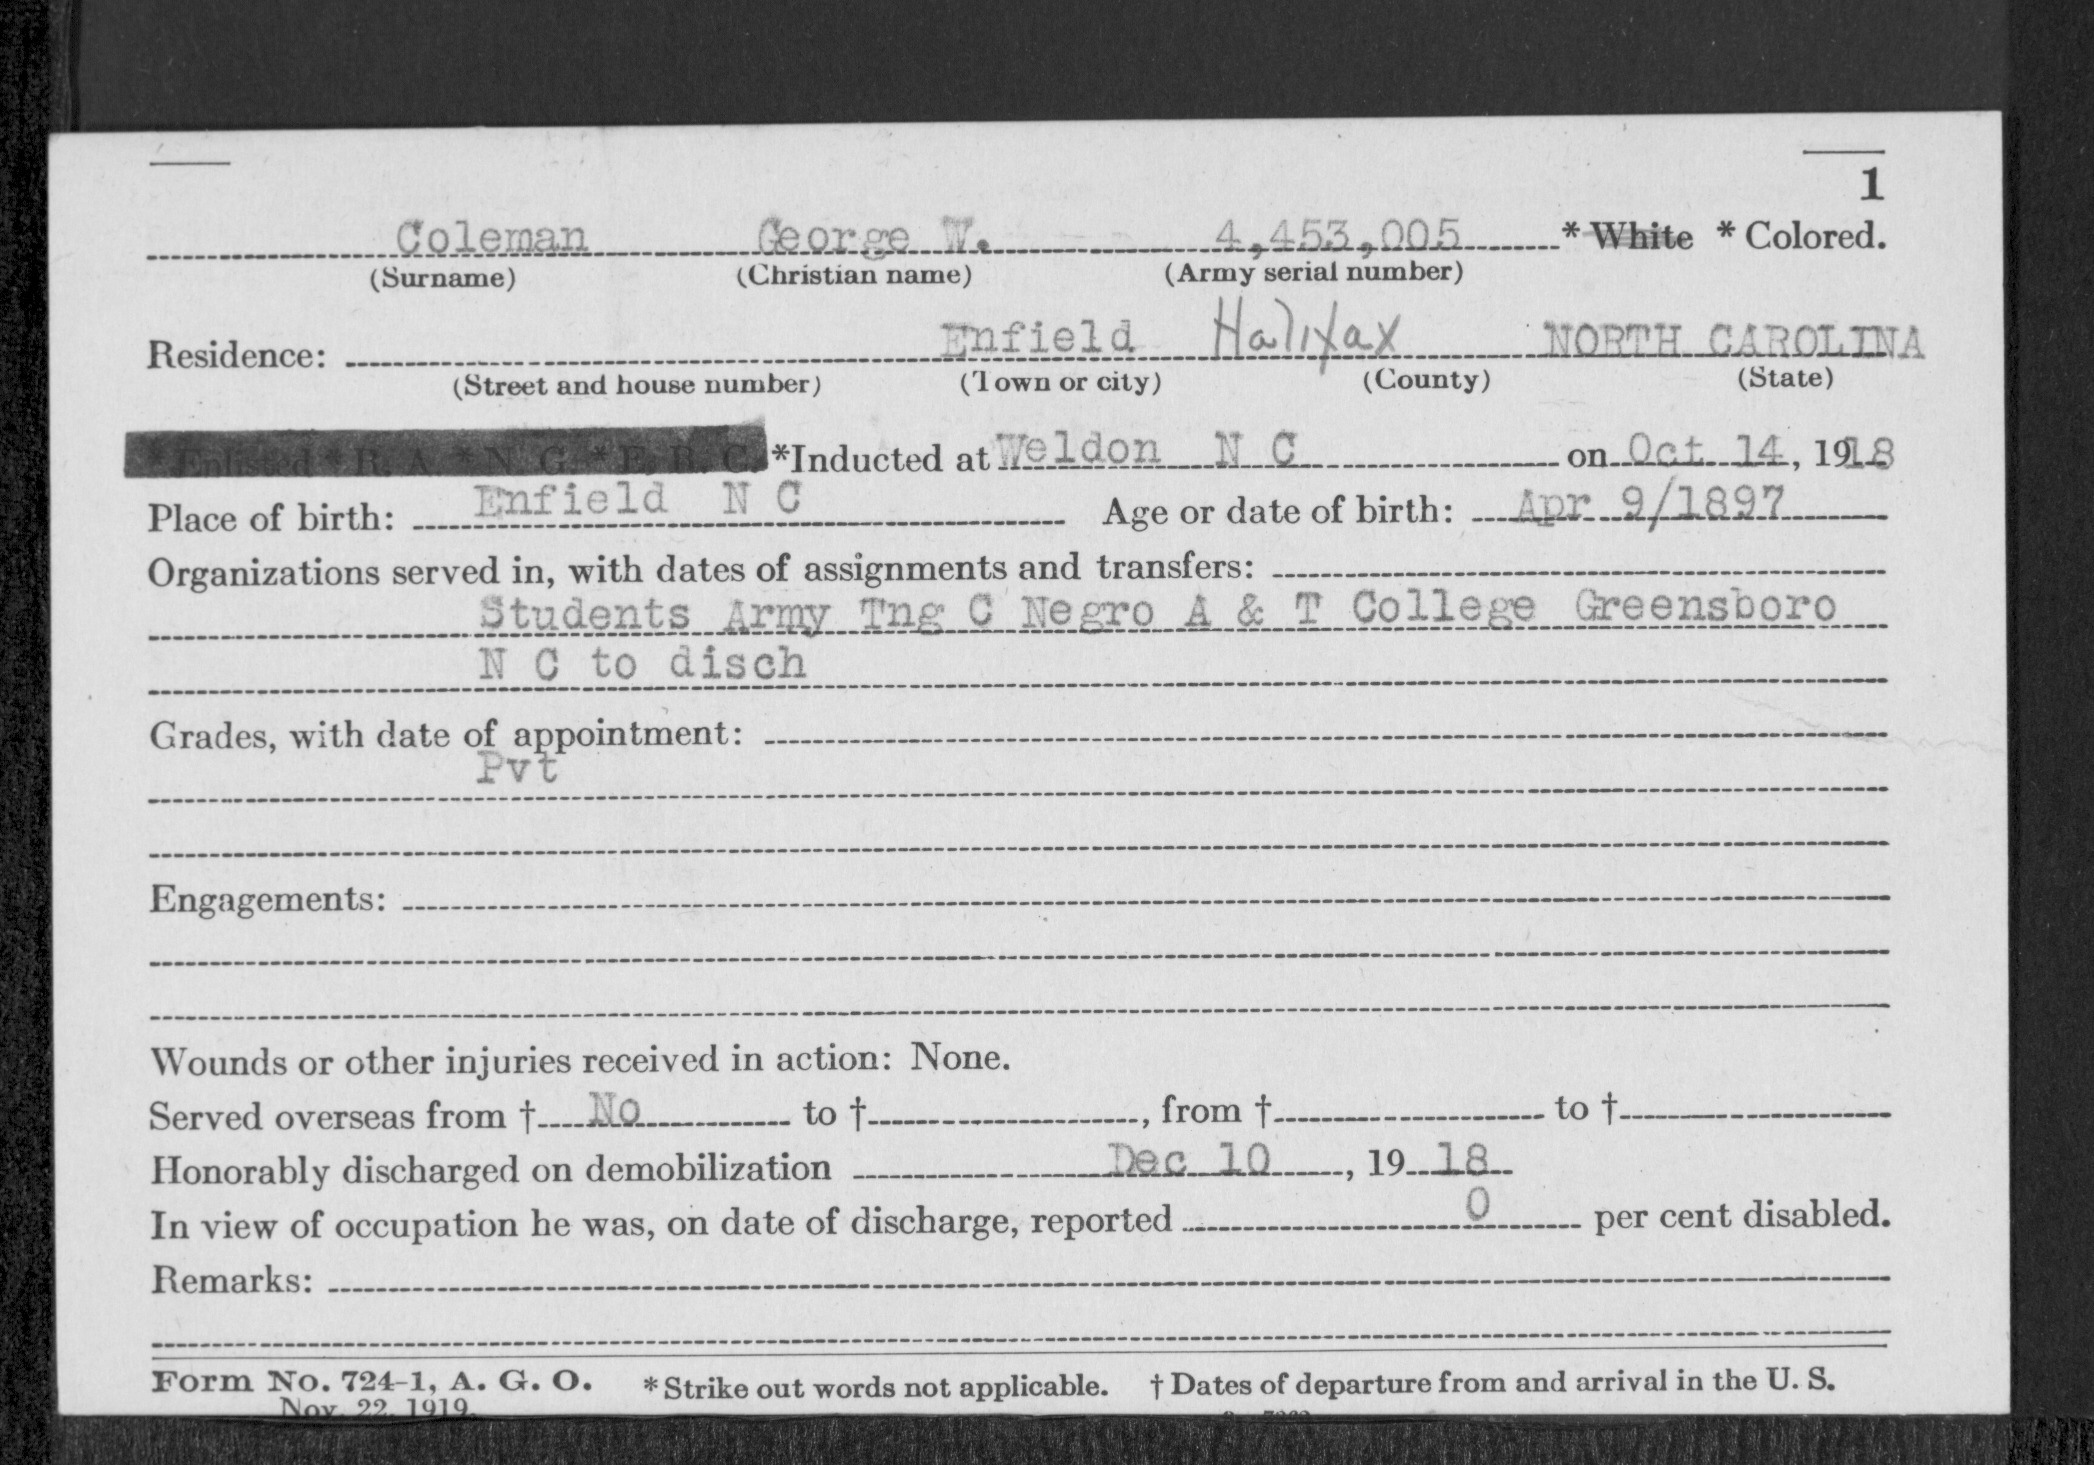 1
Coleman George W. 4,453,005 * White * Colored.
(Surname) (Christian name) (Army serial number)
Residence: Enfield Halifax NORTH CAROLINA
(Street and house number) (Town or city) (County) (State)
* Enlisted * R. A. * N. G. * E. R. C. *Inducted at Weldon N C on Oct 14, 1918
Place of birth: Enfield N C Age or date of birth: Apr 9/1897
Organizations served in, with dates of assignments and transfers:
Students Army Tng C Negro A & T College Greensboro
N C to disch
Grades, with date of appointment:
Pvt
Engagements:
Wounds or other injuries received in action: None.
Served overseas from † No to †, from † to †
Honorably discharged on demobilization Dec 10, 19 18
In view of occupation he was, on date of discharge, reported 0 per cent disabled.
Remarks:
Form No. 724-1, A. G. O. *Strike out words not applicable. † Dates of departure from and arrival in the U. S.
Nov. 22, 1919.